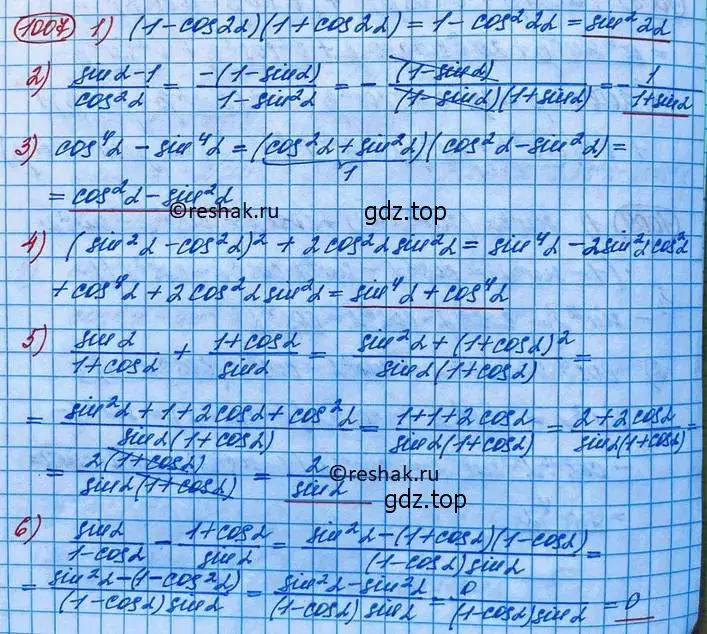 1007 1) (1-cos2α)(1+cos2α) = 1-cos²2α = sin²2α
2) (sinα-1)/(cos²α) = (-(1-sinα))/(1-sin²α) = -(1-sinα)/((1-sinα)(1+sinα)) = -1/(1+sinα)
3) cos⁴α - sin⁴α = (cos²α + sin²α)(cos²α - sin²α) =
1
= cos²α - sin²α
©reshak.ru
gdz.top
4) (sin²α - cos²α)² + 2cos²α sin²α = sin⁴α - 2sin²α cos²α
+ cos⁴α + 2cos²α sin²α = sin⁴α + cos⁴α
5) sinα/(1+cosα) + (1+cosα)/sinα = (sin²α + (1+cosα)²)/(sinα(1+cosα)) =
= (sin²α + 1 + 2cosα + cos²α)/(sinα(1+cosα)) = (1+1+2cosα)/(sinα(1+cosα)) = (2+2cosα)/(sinα(1+cosα)) =
= 2(1+cosα)/(sinα(1+cosα)) = 2/sinα
©reshak.ru
gdz.top
6) sinα/(1-cosα) - (1+cosα)/sinα = (sin²α - (1+cosα)(1-cosα))/((1-cosα)sinα) =
= (sin²α - (1-cos²α))/((1-cosα)sinα) = (sin²α - sin²α)/((1-cosα)sinα) = 0/((1-cosα)sinα) = 0